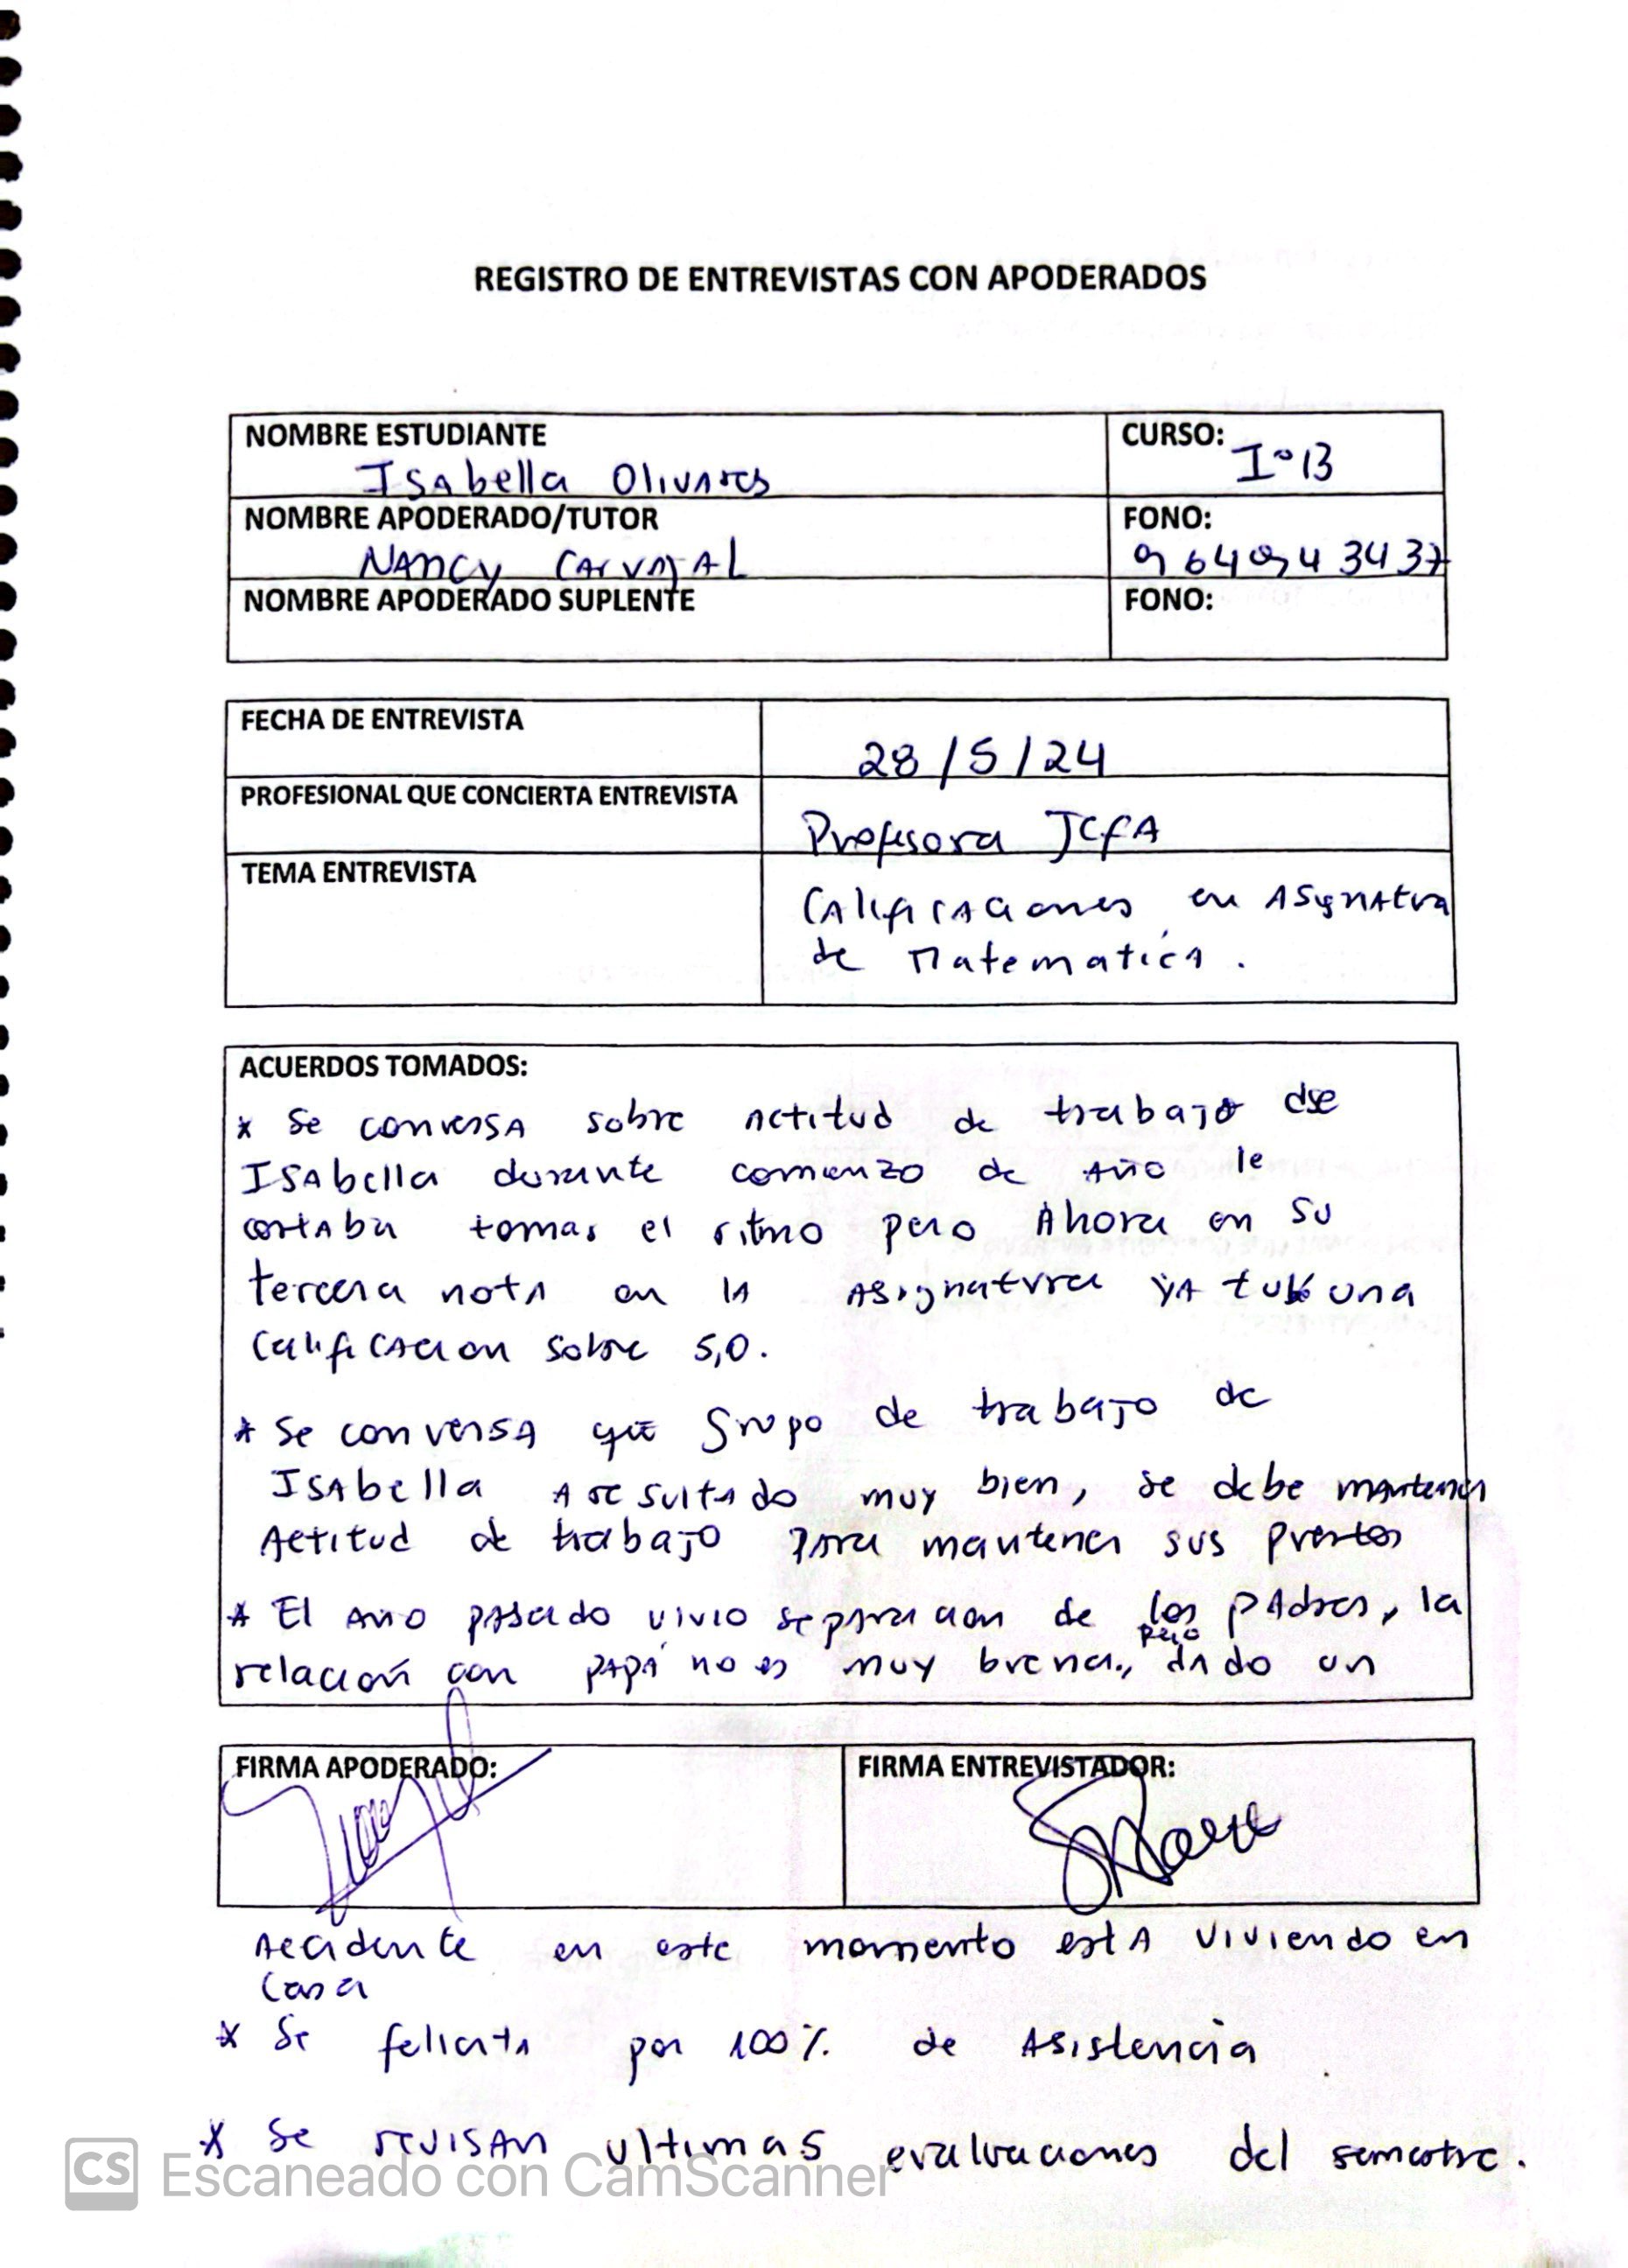 REGISTRO DE ENTREVISTAS CON APODERADOS
NOMBRE ESTUDIANTE
Isabella Olivares
CURSO:
I°B
NOMBRE APODERADO/TUTOR
Nancy Carvajal
FONO:
9 649 4 3437
NOMBRE APODERADO SUPLENTE
FONO:
FECHA DE ENTREVISTA
28/5/24
PROFESIONAL QUE CONCIERTA ENTREVISTA
Profesora Jefa
TEMA ENTREVISTA
Calificaciones en Asignatura
de Matematica.
ACUERDOS TOMADOS:
* Se conversa sobre actitud de trabajo de
Isabella durante comienzo de año le
costaba tomar el ritmo pero Ahora en su
tercera nota en la asignatura ya tuvo una
Calificacion sobre 5,0.
* Se conversa que grupo de trabajo de
Isabella a resultado muy bien, se debe mantener
Actitud de trabajo para mantener sus
* El año pasado vivio separacion de los padres, la
relación con papá no es muy buena, pero dado un
FIRMA APODERADO:
FIRMA ENTREVISTADOR:
Accidente en este momento está viviendo en
Casa
* Se felicita por 100% de Asistencia
* Se revisan ultimas evaluaciones del semestre.
CS Escaneado con CamScanner